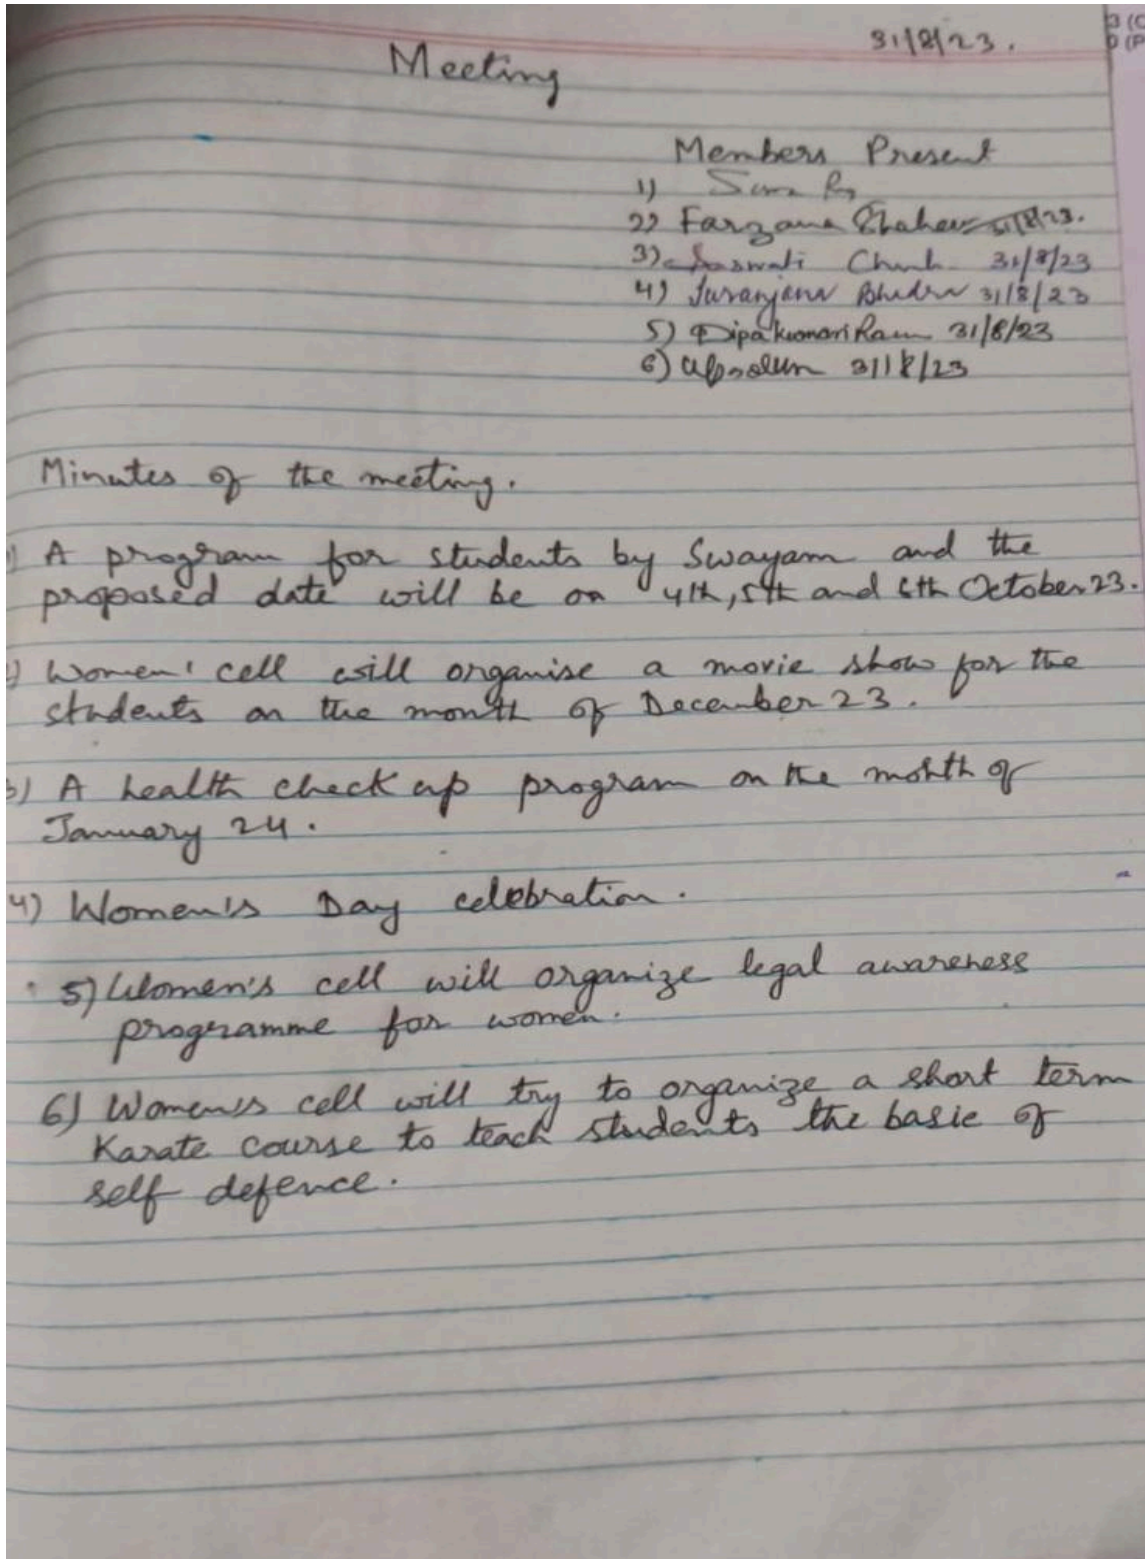 31/8/23.
Meeting
Members Present
1)
2) Farzana 31/8/23.
3) 31/8/23
4) Suranjana Bhadra 31/8/23
5) Dipa Kumari Ram 31/8/23
6) 31/8/23
Minutes of the meeting.
1) A program for students by Swayam and the
proposed date will be on 4th, 5th and 6th October 23.
2) Women' cell will organise a movie show for the
students on the month of December 23.
3) A health check up program on the month of
January 24.
4) Women's Day celebration.
5) Women's cell will organize legal awareness
programme for women.
6) Women's cell will try to organize a short term
Karate course to teach students the basic of
self defence.